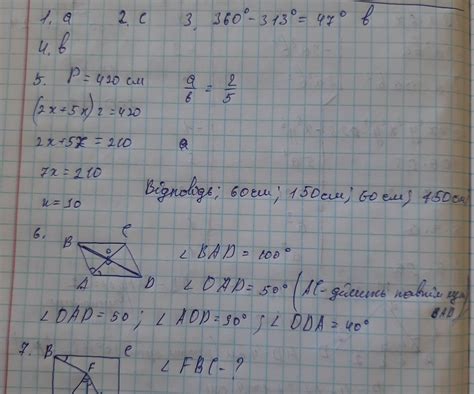 1. а 2. с 3. 360° - 313° = 47° в
4. в
5. P = 420 см a/b = 2/5
(2x+5x) 2 = 420
2x+5x = 210 a
7x = 210
x = 30 Відповідь; 60см; 150см; 60см; 150см
6. B C O A D ∠BAD = 100°
∠OAD = 50° (AC - ділить навпіл кут BAD)
∠OAD = 50; ∠AOD = 90°; ∠ODA = 40°
7. B C F ∠FBC - ?